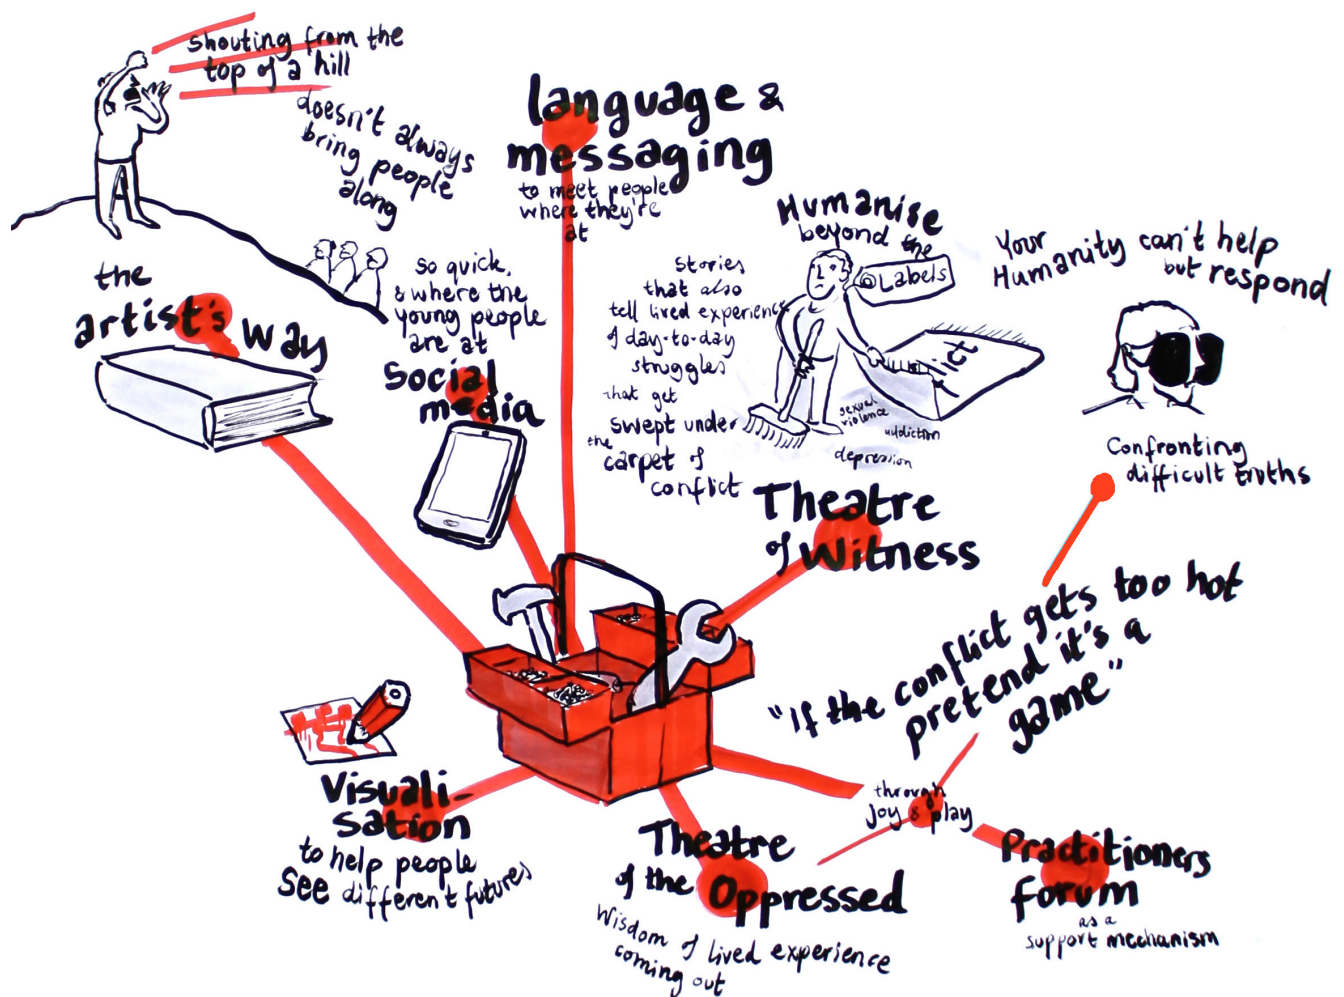 Shouting from the
top of a hill
doesn't always
bring people
along
language &
messaging
to meet people
where they're
at
the
artist's way
so quick,
& where the
young people
are at
Social
media
Stories
that also
tell lived experience
of day-to-day
struggles
that get
swept under
the
carpet of
conflict
Humanise
beyond the
Labels
flict
sexual
violence
addiction
depression
Your
Humanity can't help
but respond
Confronting
difficult truths
Theatre
of Witness
"If the conflict gets too hot
pretend it's a
game"
through
Joy & play
Visuali-
sation
to help people
See different futures
Theatre
of the Oppressed
Wisdom of lived experience
coming out
Practitioners
forum
as a
support mechanism